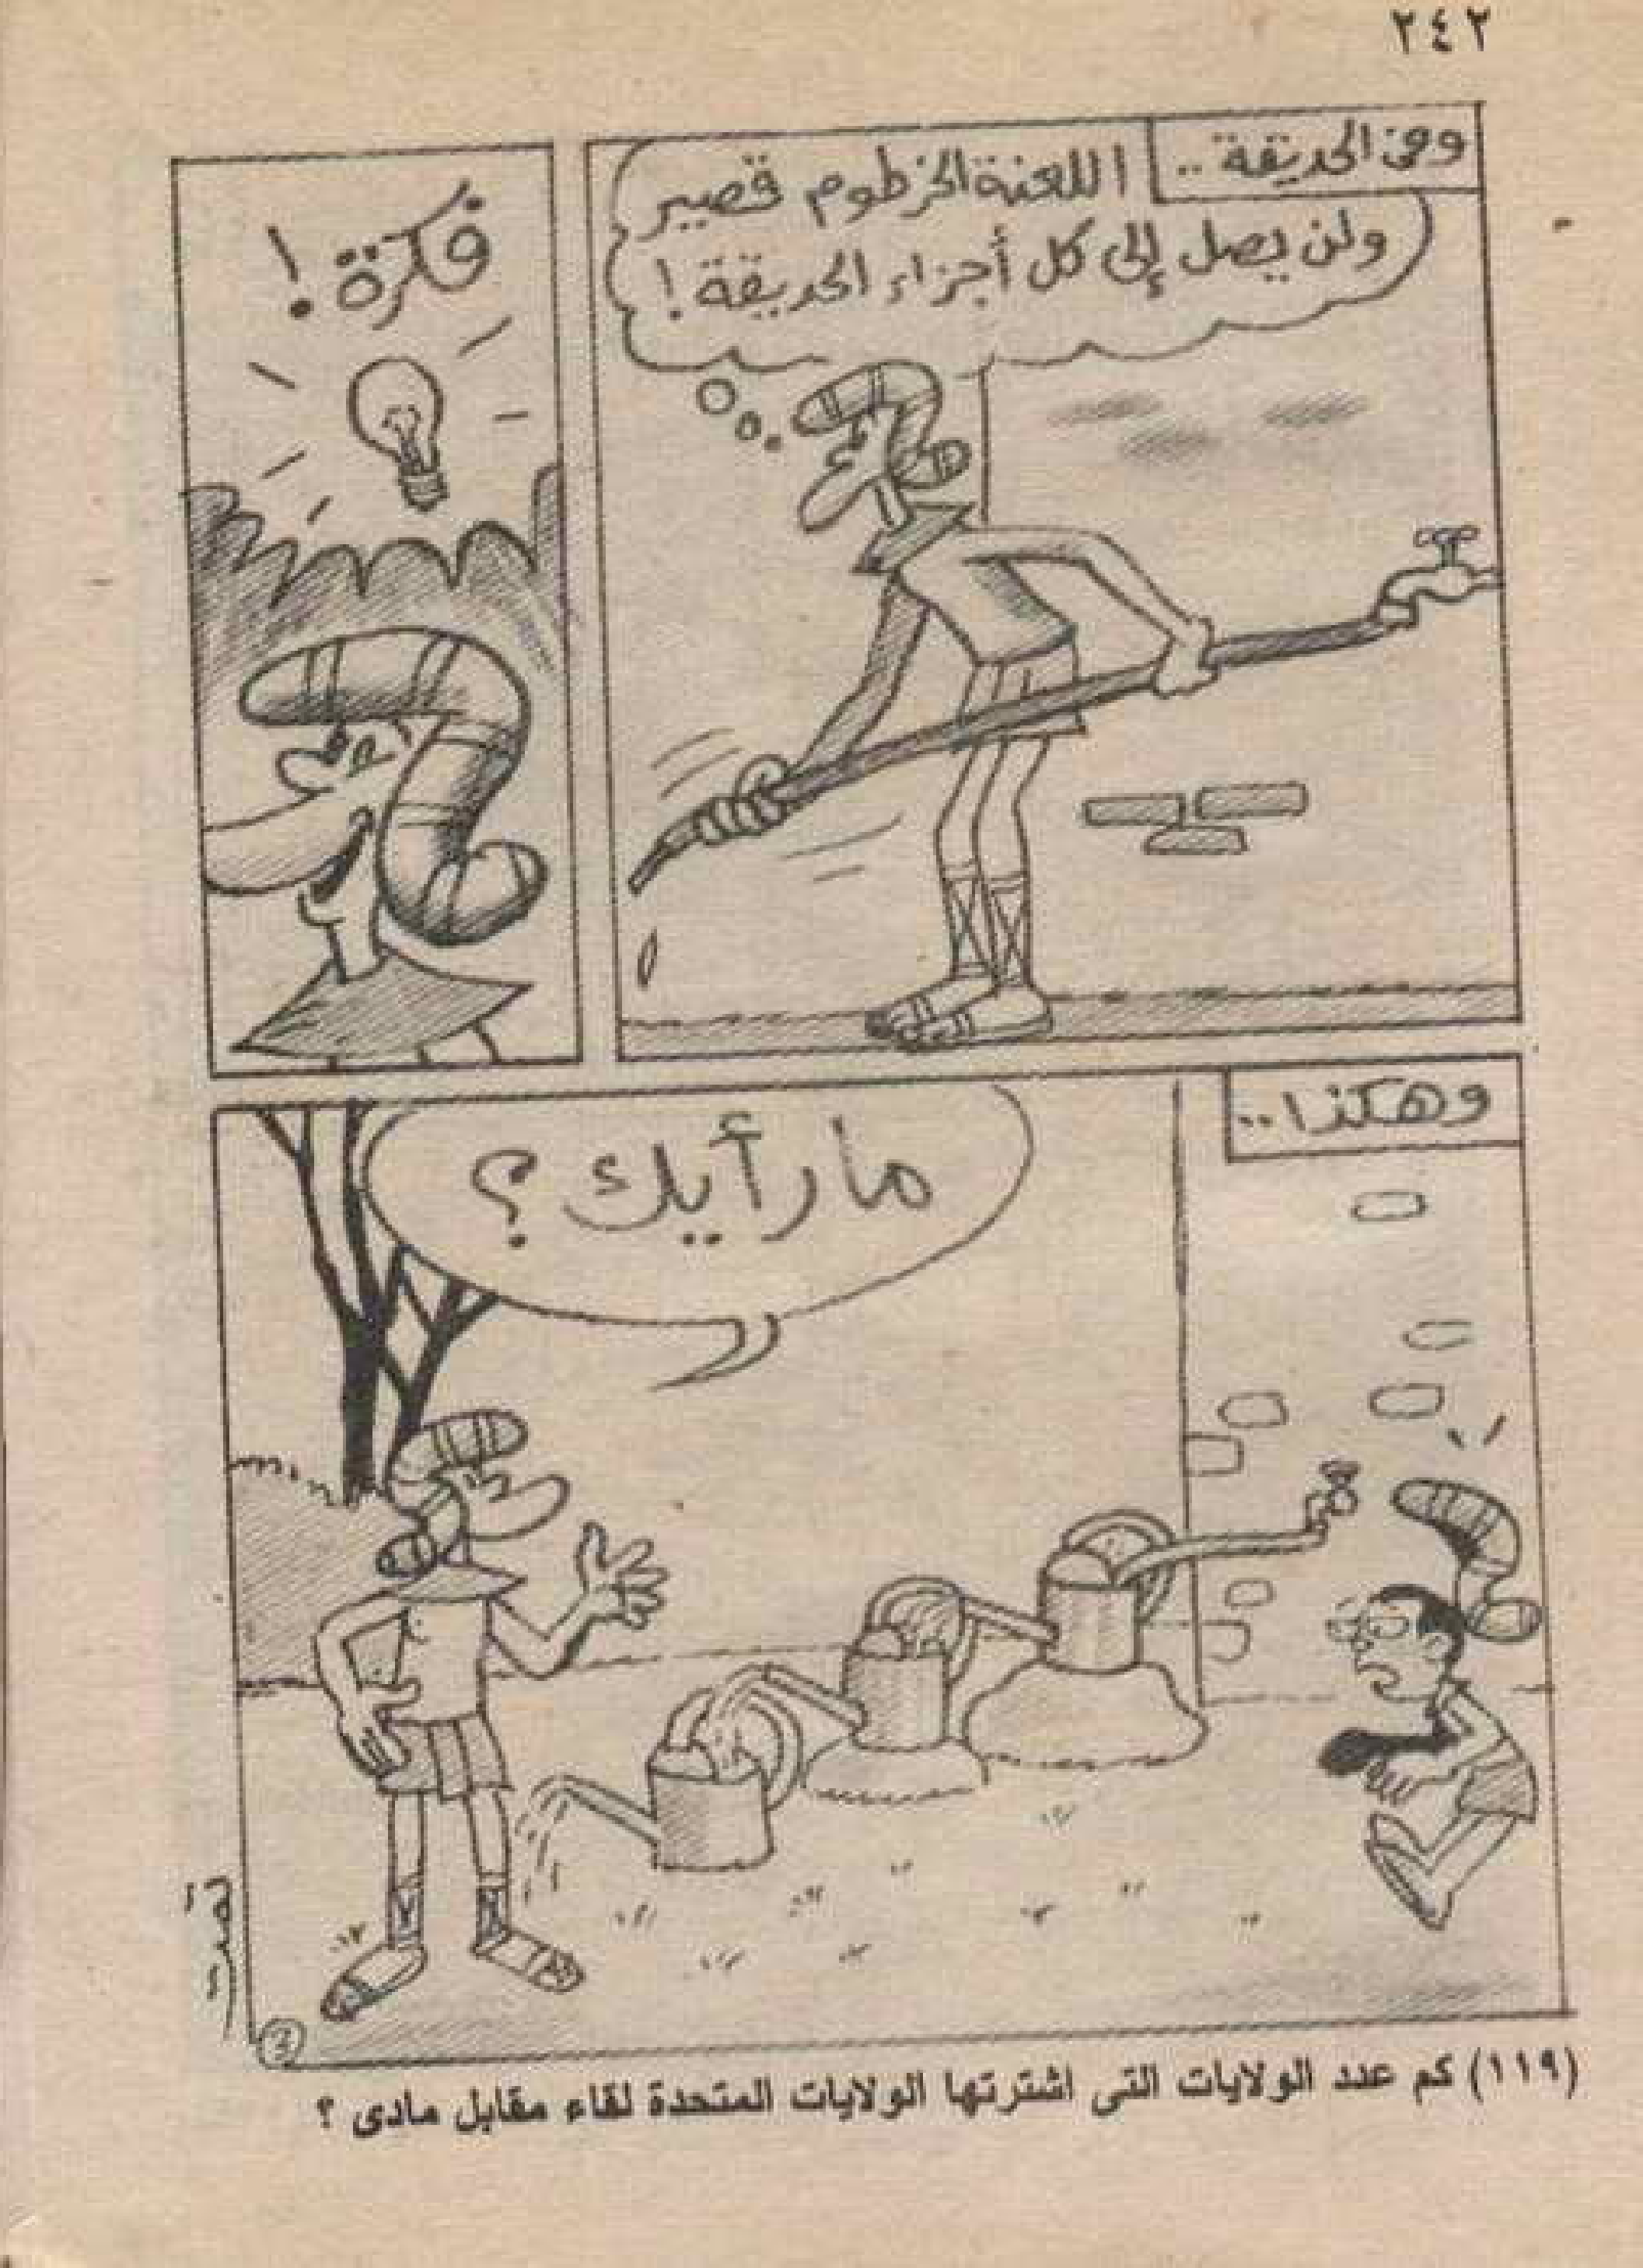 ٢٤٢
وفى الحديقة..
اللعنة الخرطوم قصير
ولن يصل إلى كل أجزاء الحديقة !
فكرة !
وهكذا..
ما رأيك ؟
(١١٩) كم عدد الولايات التى اشترتها الولايات المتحدة لقاء مقابل مادى ؟